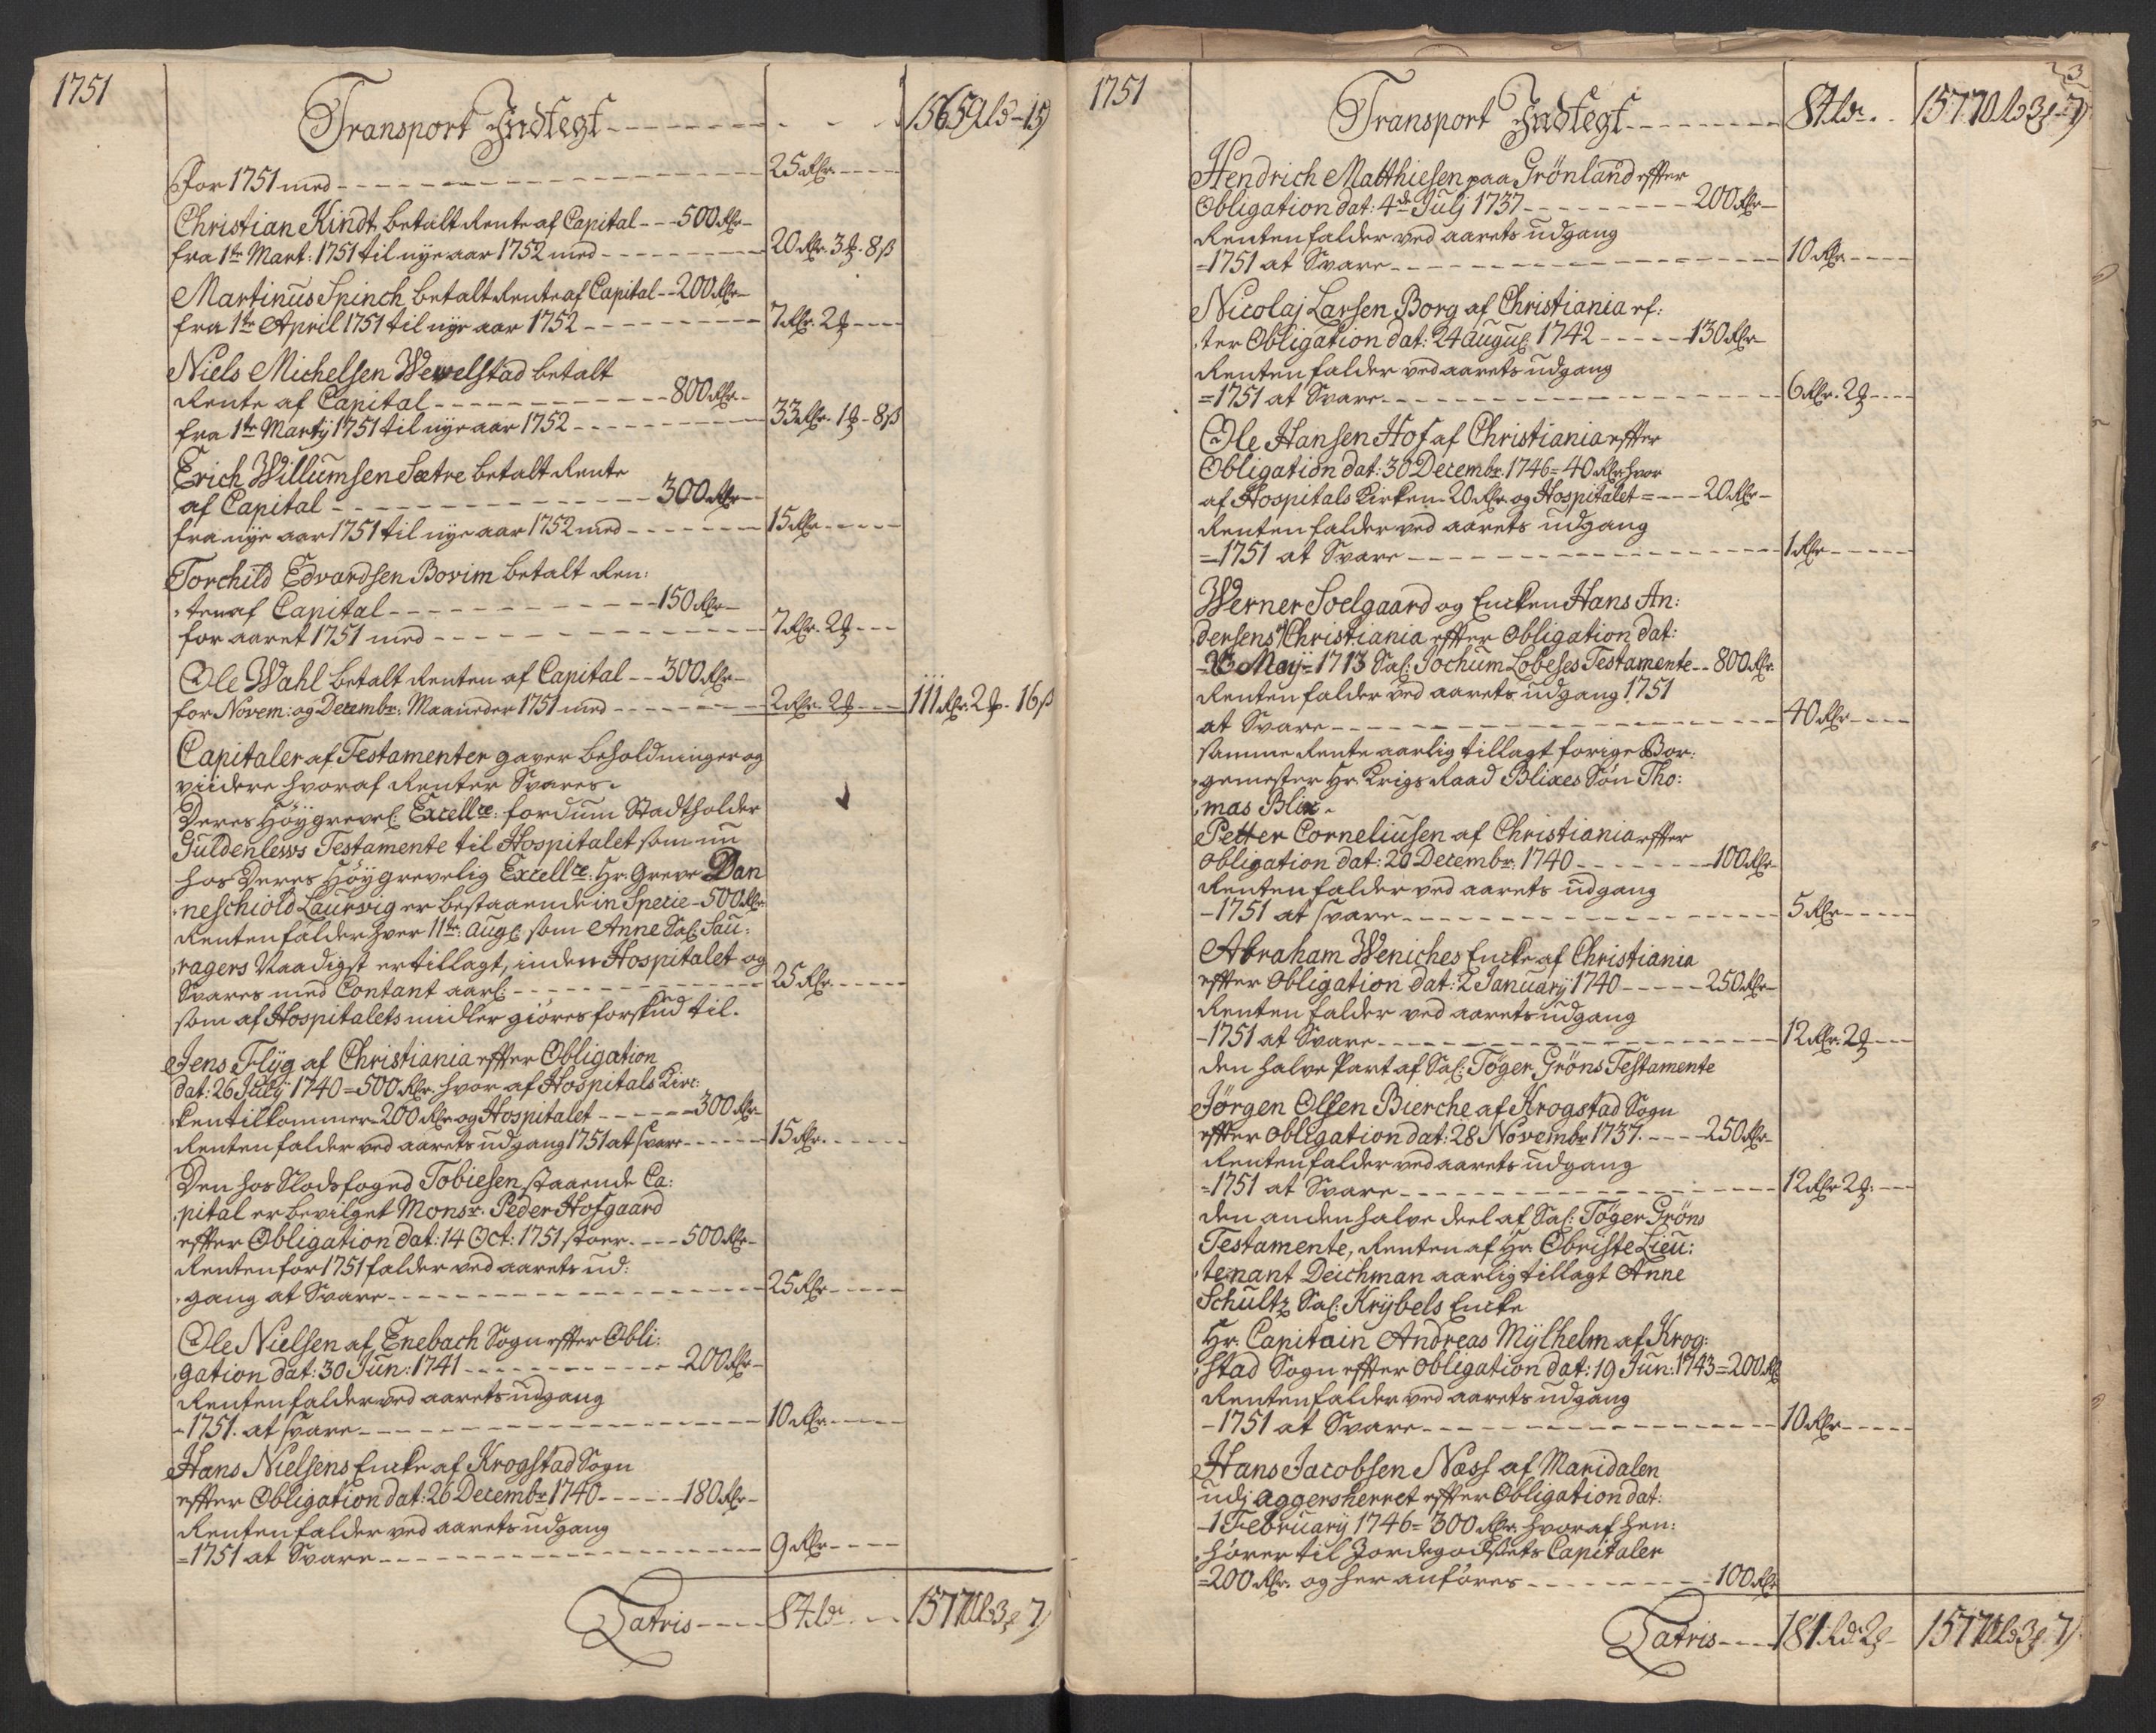 1751
Transport Indtegt - - - 1565 Rdr - 15 ß
for 1751 med - - - 25 Rdr - - -
Christian Kindt betalt Rente af Capital - - 500 Rdr -
fra 1te Mart: 1751 til nye aar 1752 med - - - 20 Rdr. 3 ₰ - 8 ß
Martinus Spinch betalt Rente af Capital - - 200 Rdr -
fra 1te April 1751 til nye aar 1752 - - - 7 Rdr. 2 ₰ - - -
Niels Michelsen Wewelstad betalt
Rente af Capital - - - 800 Rdr -
fra 1te Martij 1751 til nye aar 1752 - - - 33 Rdr. 1 ₰ - 8 ß
Erich Willumsen Sætre betalt Rente
af Capital - - - 300 Rdr -
fra nye aar 1751 til nye aar 1752 med - - - 15 Rdr - - -
Torchild Edvardsen Bovim betalt Ren:
,ten af Capital - - - 150 Rdr -
for aaret 1751 med - - - 7 Rdr. 2 ₰ - - -
Ole Wahl betalt Renten af Capital - - 300 Rdr -
for Novem: og Decembr: Maaneder 1751 med - - - 2 Rdr. 2 ₰ - - - 111 Rdr. 2 ₰ - 16 ß
Capitaler af Testamenter gaver beholdninger og
viidere hvoraf Renter Svares.
Deres Höygrevel: Excellce: fordum Stadtholder
Guldenlews Testamente til Hospitalet som nu
hos Deres Höygrevelig Excellce: Hr. Greve Dan
,neschiold Laurvig er bestaaende in Specie - 500 Rdr
Renten falder hver 11te: Aug: som Anne Sal: Sau:
,ragers Naadigst er tillagt, inden Hospitalet og
Svares med Contant aarl: - - - 25 Rdr. - - -
som af Hospitalets midler giöres forskud til.
Jens Flyg af Christiania effter Obligation
dat: 26 July 1740 = 500 Rdr. hvor af Hospitals Kir:
,ken tilkommer 200 Rdr og Hospitalet - - - 300 Rdr
Renten falder ved aarets udgang 1751 at svare - - - 15 Rdr. - - -
Den hos Slodsfoged Tobiesen staaende Ca:
,pital er bevilget Monsr. Peder Hofgaard
effter Obligation dat: 14 Oct: 1751 stoer. - - - 500 Rdr -
Renten for 1751 falder ved aarets ud:
,gang at Svare - - - 25 Rdr - - -
Ole Nielsen af Enebach Sogn effter Obli:
,gation dat: 30 Jun: 1741 - - - 200 Rdr -
Renten falder ved aarets udgang
- 1751. at svare - - - 10 Rdr - - -
Hans Nielsens Encke af Krogstad Sogn
effter Obligation dat: 26 Decembr 1740 - - - 180 Rdr -
Renten falder ved aarets udgang
= 1751 at Svare - - - 9 Rdr - - -
Latris - - - 84 Rdr - - 1577 Rdr 3 ₰ 7 ß
3
1751
Transport Indtegt - - - 84 Rdr. - 1577 Rdr 3 ₰ 7 ß
Hendrich Matthiesen paa Grönland effter
Obligation dat: 4de Julj 1737 - - - 200 Rdr -
Renten falder ved aarets udgang
= 1751 at Svare - - - 10 Rdr - - -
Nicolaj Larsen Borg af Christiania ef:
,ter Obligation dat: 24 Augu: 1742 - - - 130 Rdr -
Renten falder ved aarets udgang
= 1751 at Svare - - - 6 Rdr. 2 ₰ - - -
Ole Hansen Hof af Christiania effter
Obligation dat: 30 Decembr. 1746 = 40 Rdr hvor
af Hospitals Kirken - 20 Rdr og Hospitalet = - - - 20 Rdr -
Renten falder ved aarets udgang
= 1751 at Svare - - - 1 Rdr - - -
Werner Soelgaard og Encken Hans An:
,dersens af Christiania effter Obligation dat:
- 23 Maij - 1713 Sal: Jochum Lobeses Testamente - - 800 Rdr
Renten falder ved aarets udgang 1751
at Svare - - - 40 Rdr - - -
samme Rente aarlig tillagt forige Bor:
,gemester Hr. Krigs Raad Blixes Sön Tho:
,mas Blix.
Petter Corneliusen af Christiania effter
Obligation dat: 20 Decembr. 1740 - - - 100 Rdr -
Renten falder ved aarets udgang
- 1751 at svare - - - 5 Rdr - - -
Abraham Weniches Encke af Christiania
effter Obligation dat: 2 January 1740 - - - 250 Rdr -
Renten falder ved aarets udgang
- 1751 at Svare - - - 12 Rdr. 2 ₰ - - -
den halve Part af Sal: Töger Gröns Testamente
Jörgen Olsen Bierche af Krogstad Sogn
effter Obligation dat: 28 Novembr 1737. - - - 250 Rdr -
Renten falder ved aarets udgang
= 1751 at Svare - - - 12 Rdr 2 ₰ - - -
den anden halve deel af Sal: Töger Gröns
Testamente, Renten af Hr. Obriste Lieu:
,tenant Deichman aarlig tillagt Anne
Schultz Sal: Krybels Encke
Hr. Capitain Andreas Mylhelm af Krog:
,stad Sogn effter Obligation dat: 19 Jun: 1743 = 200 Rdr
Renten falder ved aarets udgang
- 1751 at Svare - - - 10 Rdr - - -
Hans Jacobsen Næss af Maridalen
udj Aggersherret effter Obligation dat:
- 1 February 1746 = 300 Rdr. hvoraf hen:
,hörer til Jordegodssets Capitaler
= 200 Rdr. og her anföres - - - 100 Rdr
Latris - - - 181 Rdr 2 ₰ - 1577 Rdr 3 ₰ 7 ß